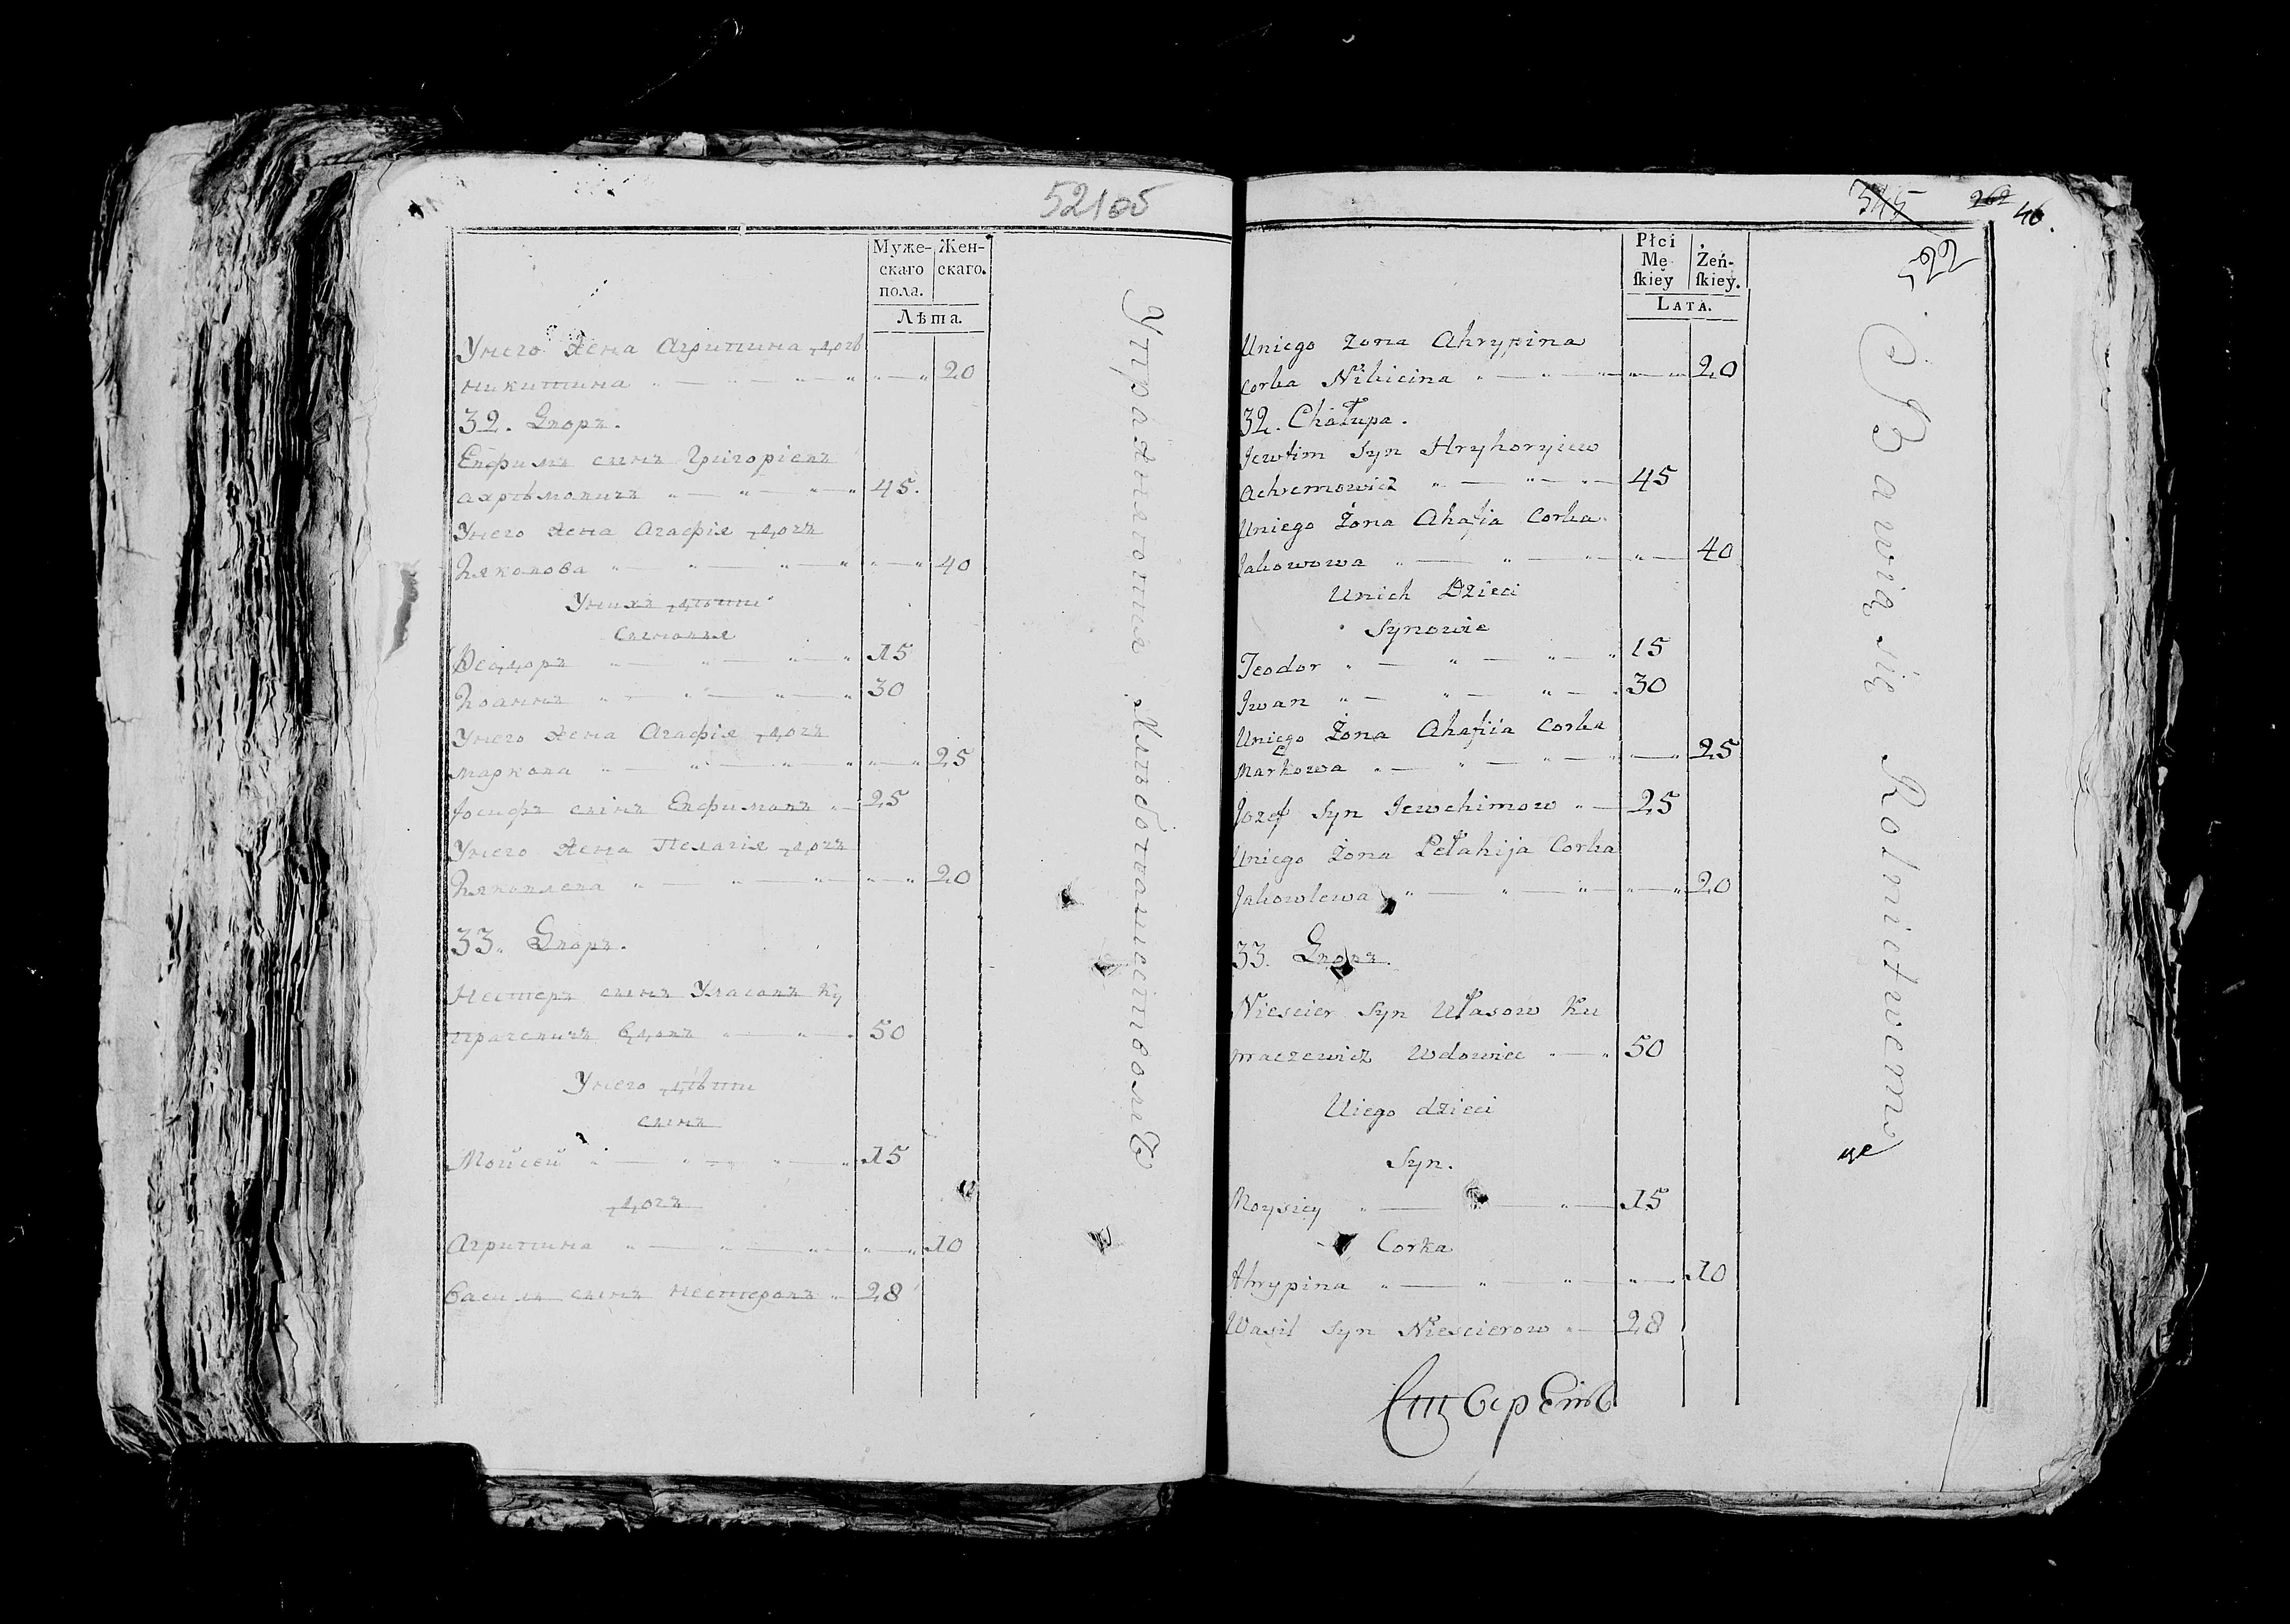 521об
Муже-
скаго
пола.
Жен-
скаго.
Лѣта.
Унего жена Агрипина дочь
никитина 20
32. Дворъ.
Евфимъ сынъ Григоріевъ
ахрѣмовичъ 45.
Унего жена Агафія дочъ
Іяковова 40
Унихъ дѣти
сыновья
Ѳеодоръ 15
Іоаннъ 30
Унего жена Агафія дочъ
маркова 25
Іосифъ сынъ Евфимовъ 25
Унего жена Пелагія дочъ
Іяковлева 20
33. Дворъ.
Нестеръ сынъ Уласовъ Ку
прачевичъ вдовъ 50
Унего дѣти
сынъ
Мойсей 15
дочъ
Агрипина 10
Василь сынъ Нестеровъ 28
Упражняются хлѣбопашествомъ
545 262 46.
522
Płci
Mę
skiey
Żeń-
skiey.
LATA.
Uniego żona Ahrypina
corka Nikicina 20
32. Chałupa.
Jewfim Syn Hryhoryiew
Achremowicz 45
Uniego Żona Ahafia Corka
Jakowowa 40
Unich Dzieci
Synowie
Teodor 15
Jwan 30
Uniego Żona Ahafiia Corka
Markowa 25
Jozef Syn Jewchimow 25
Uniego żona Pełahija Corka
Jakowlewa 20
33. Дворъ.
Niescier Syn Ułasow Ku
praczewicz Wdowiec 50
Uiego dzieci
Syn.
Moysiey 15
Corka
Ahrypina 10
Wasil Syn Niescierow 28
Bawią się Rolnictwem